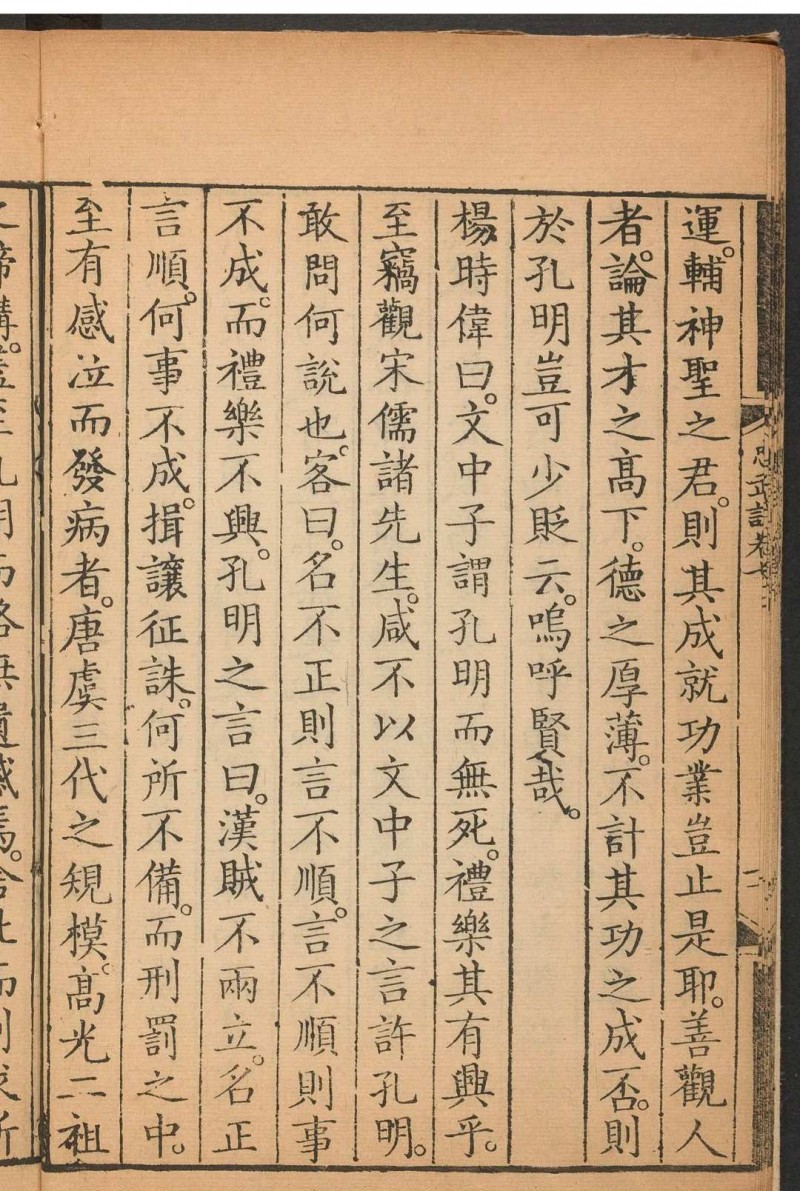 運。輔神聖之君。則其成就功業豈止是耶。善觀人
者。論其才之高下。德之厚薄。不計其功之成否。則
於孔明豈可少貶云。嗚呼賢哉。
楊時偉曰。文中子謂孔明而無死。禮樂其有興乎。
至竊觀宋儒諸先生。咸不以文中子之言許孔明。
敢問何說也。客曰。名不正則言不順。言不順則事
不成。而禮樂不興。孔明之言曰。漢賊不兩立。名正
言順。何事不成。揖讓征誅。何所不備。而刑罰之中。
至有感泣而發病者。唐虞三代之規模。高光二祖